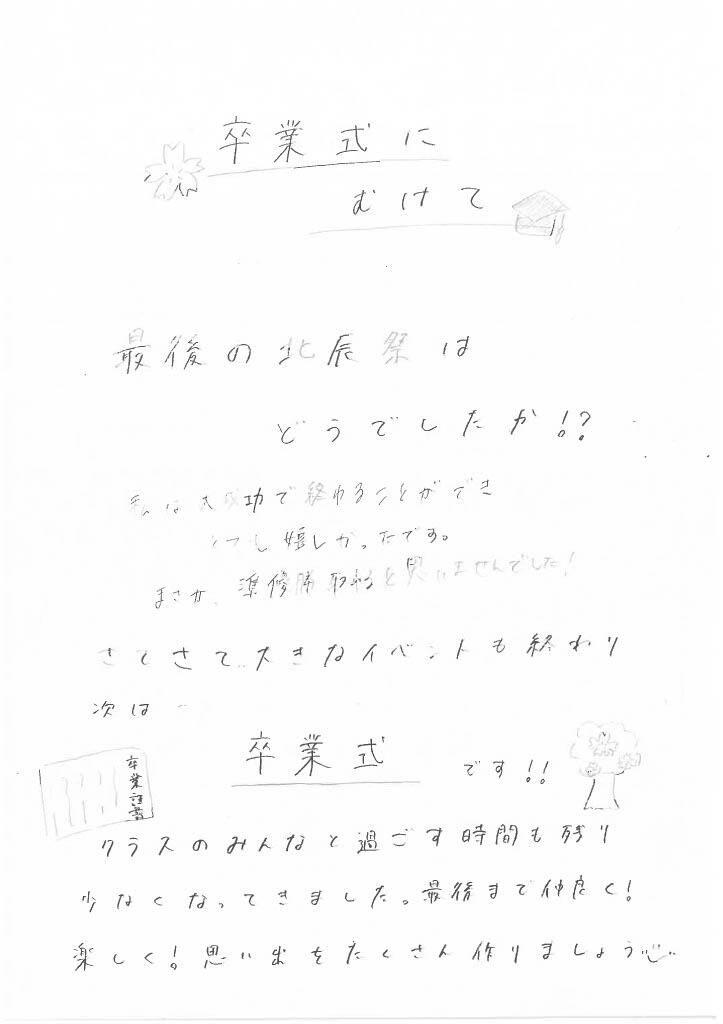 卒業式に
むけて
最後の北辰祭は
どうでしたか!?
私は大成功で終わることができ
とても嬉しかったです。
まさか、準優勝取れると思いませんでした!
さてさて…大きなイベントも終わり
次は…
卒業式 です!!
卒業証書
クラスのみんなと過ごす時間も残り
少なくなってきました。最後まで仲良く!
楽しく!思い出をたくさん作りましょう